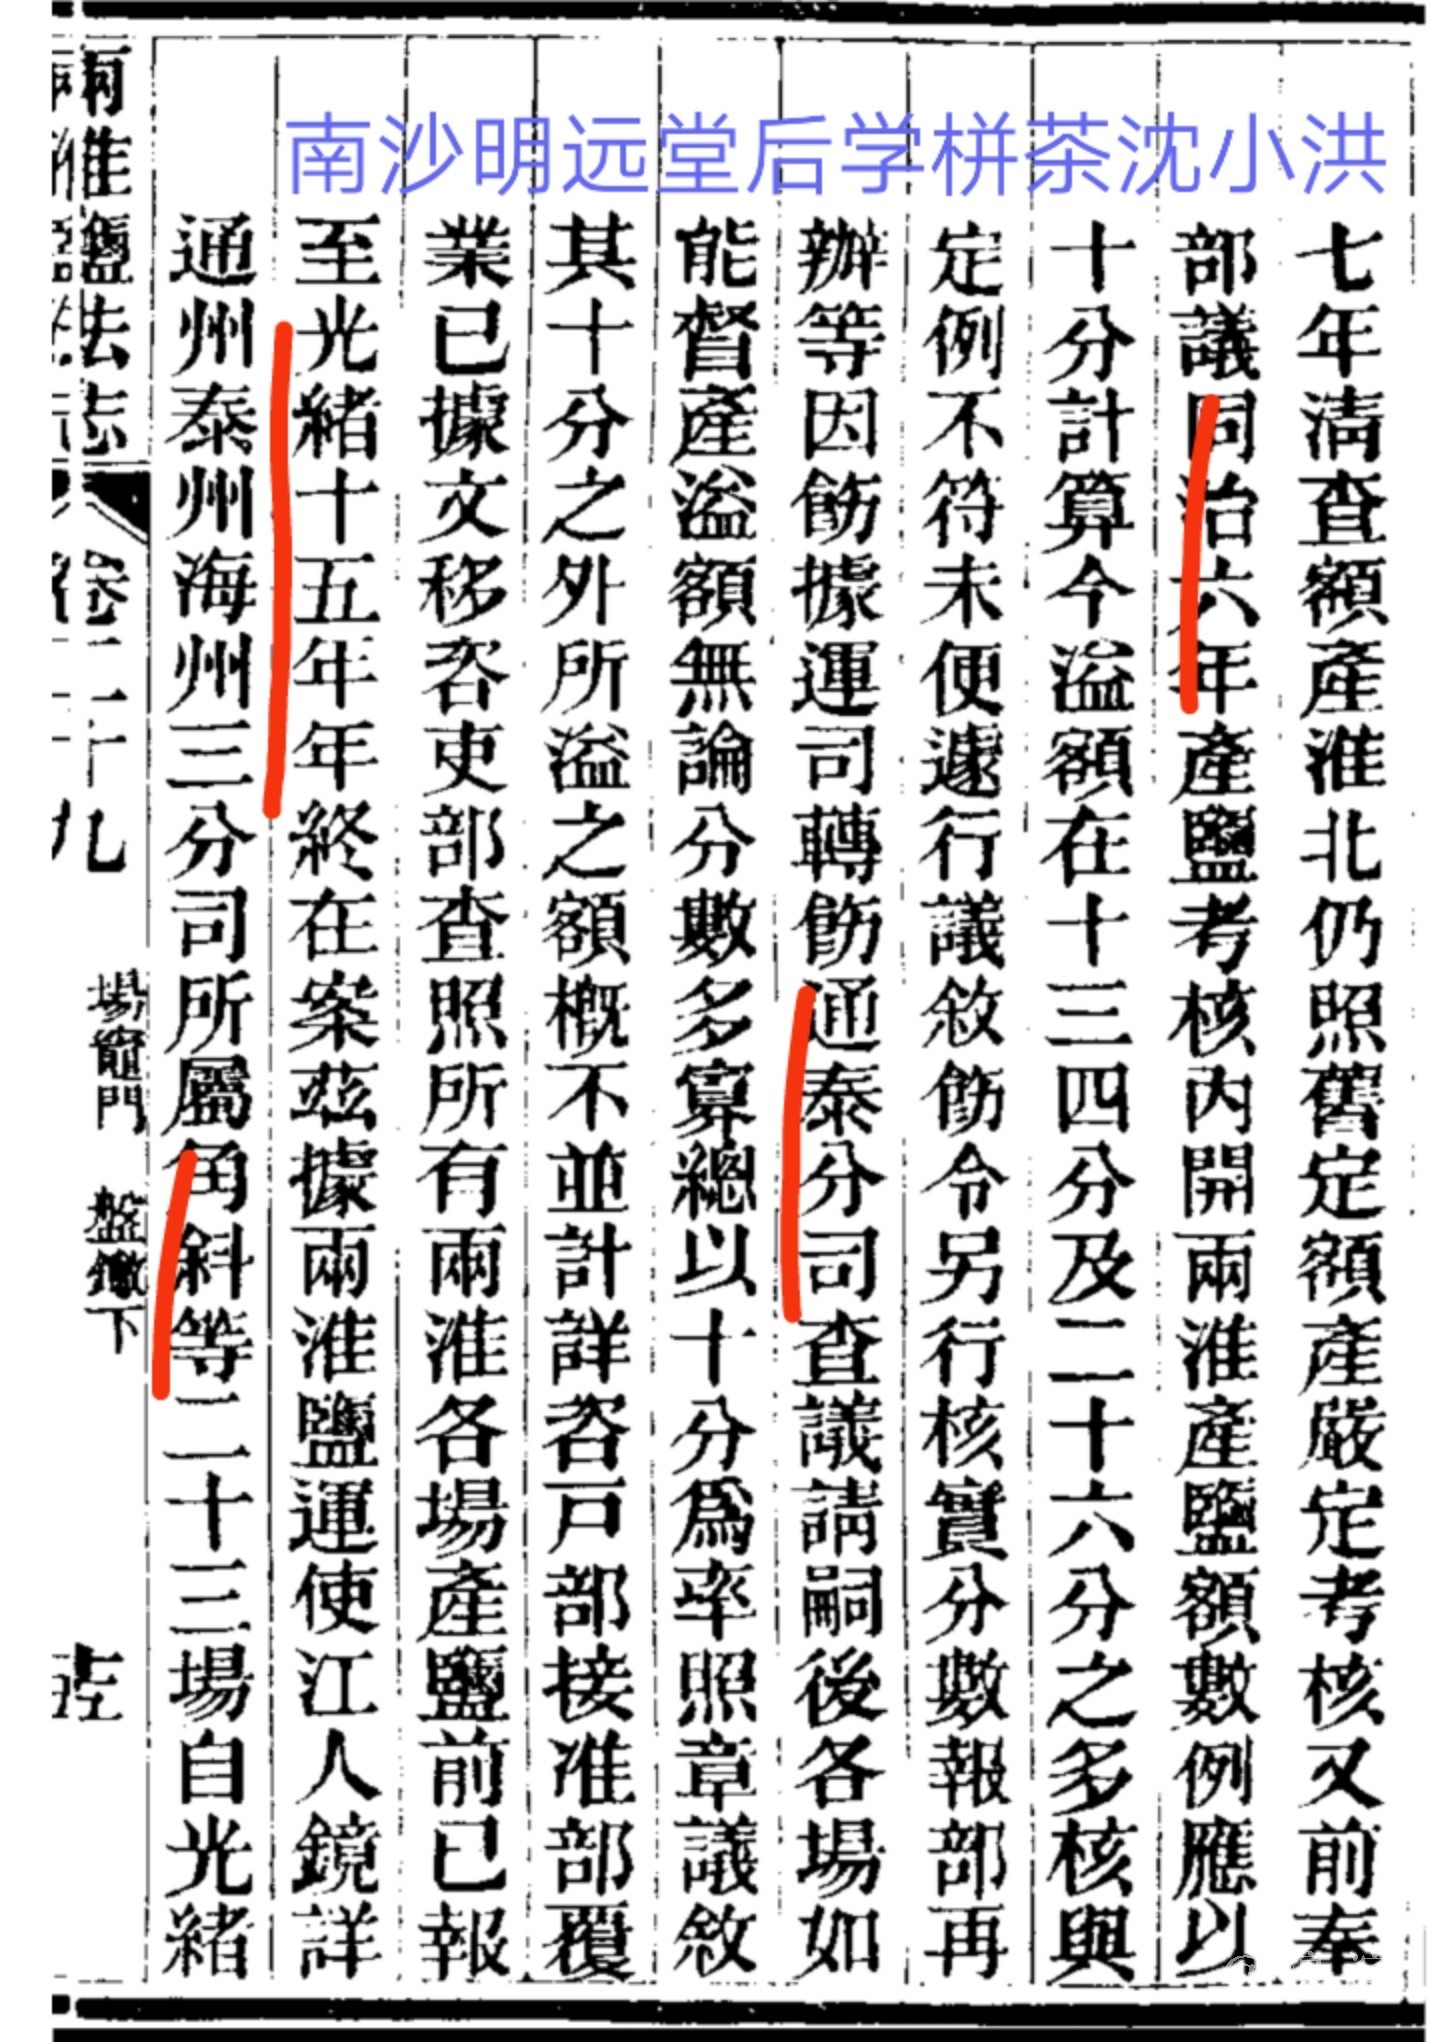 南沙明远堂后学栟茶沈小洪
七年清查額產淮北仍照舊定額產嚴定考核又前奉
部議同治六年產鹽考核內開兩淮產鹽額數例應以
十分計算今溢額在十三四分及二十六分之多核與
定例不符未便遽行議敘飭令另行核實分數報部再
辦等因飭據運司轉飭通泰分司查議請嗣後各場如
能督產溢額無論分數多寡總以十分爲率照章議敘
其十分之外所溢之額槪不並計詳咨戸部接准部覆
業已據文移咨吏部查照所有兩淮各場產鹽前已報
至光緒十五年年終在案茲據兩淮鹽運使江人鏡詳
通州泰州海州三分司所屬角斜等二十三場自光緒
兩淮鹽法志 卷二十九 場竈門 盤䥥下